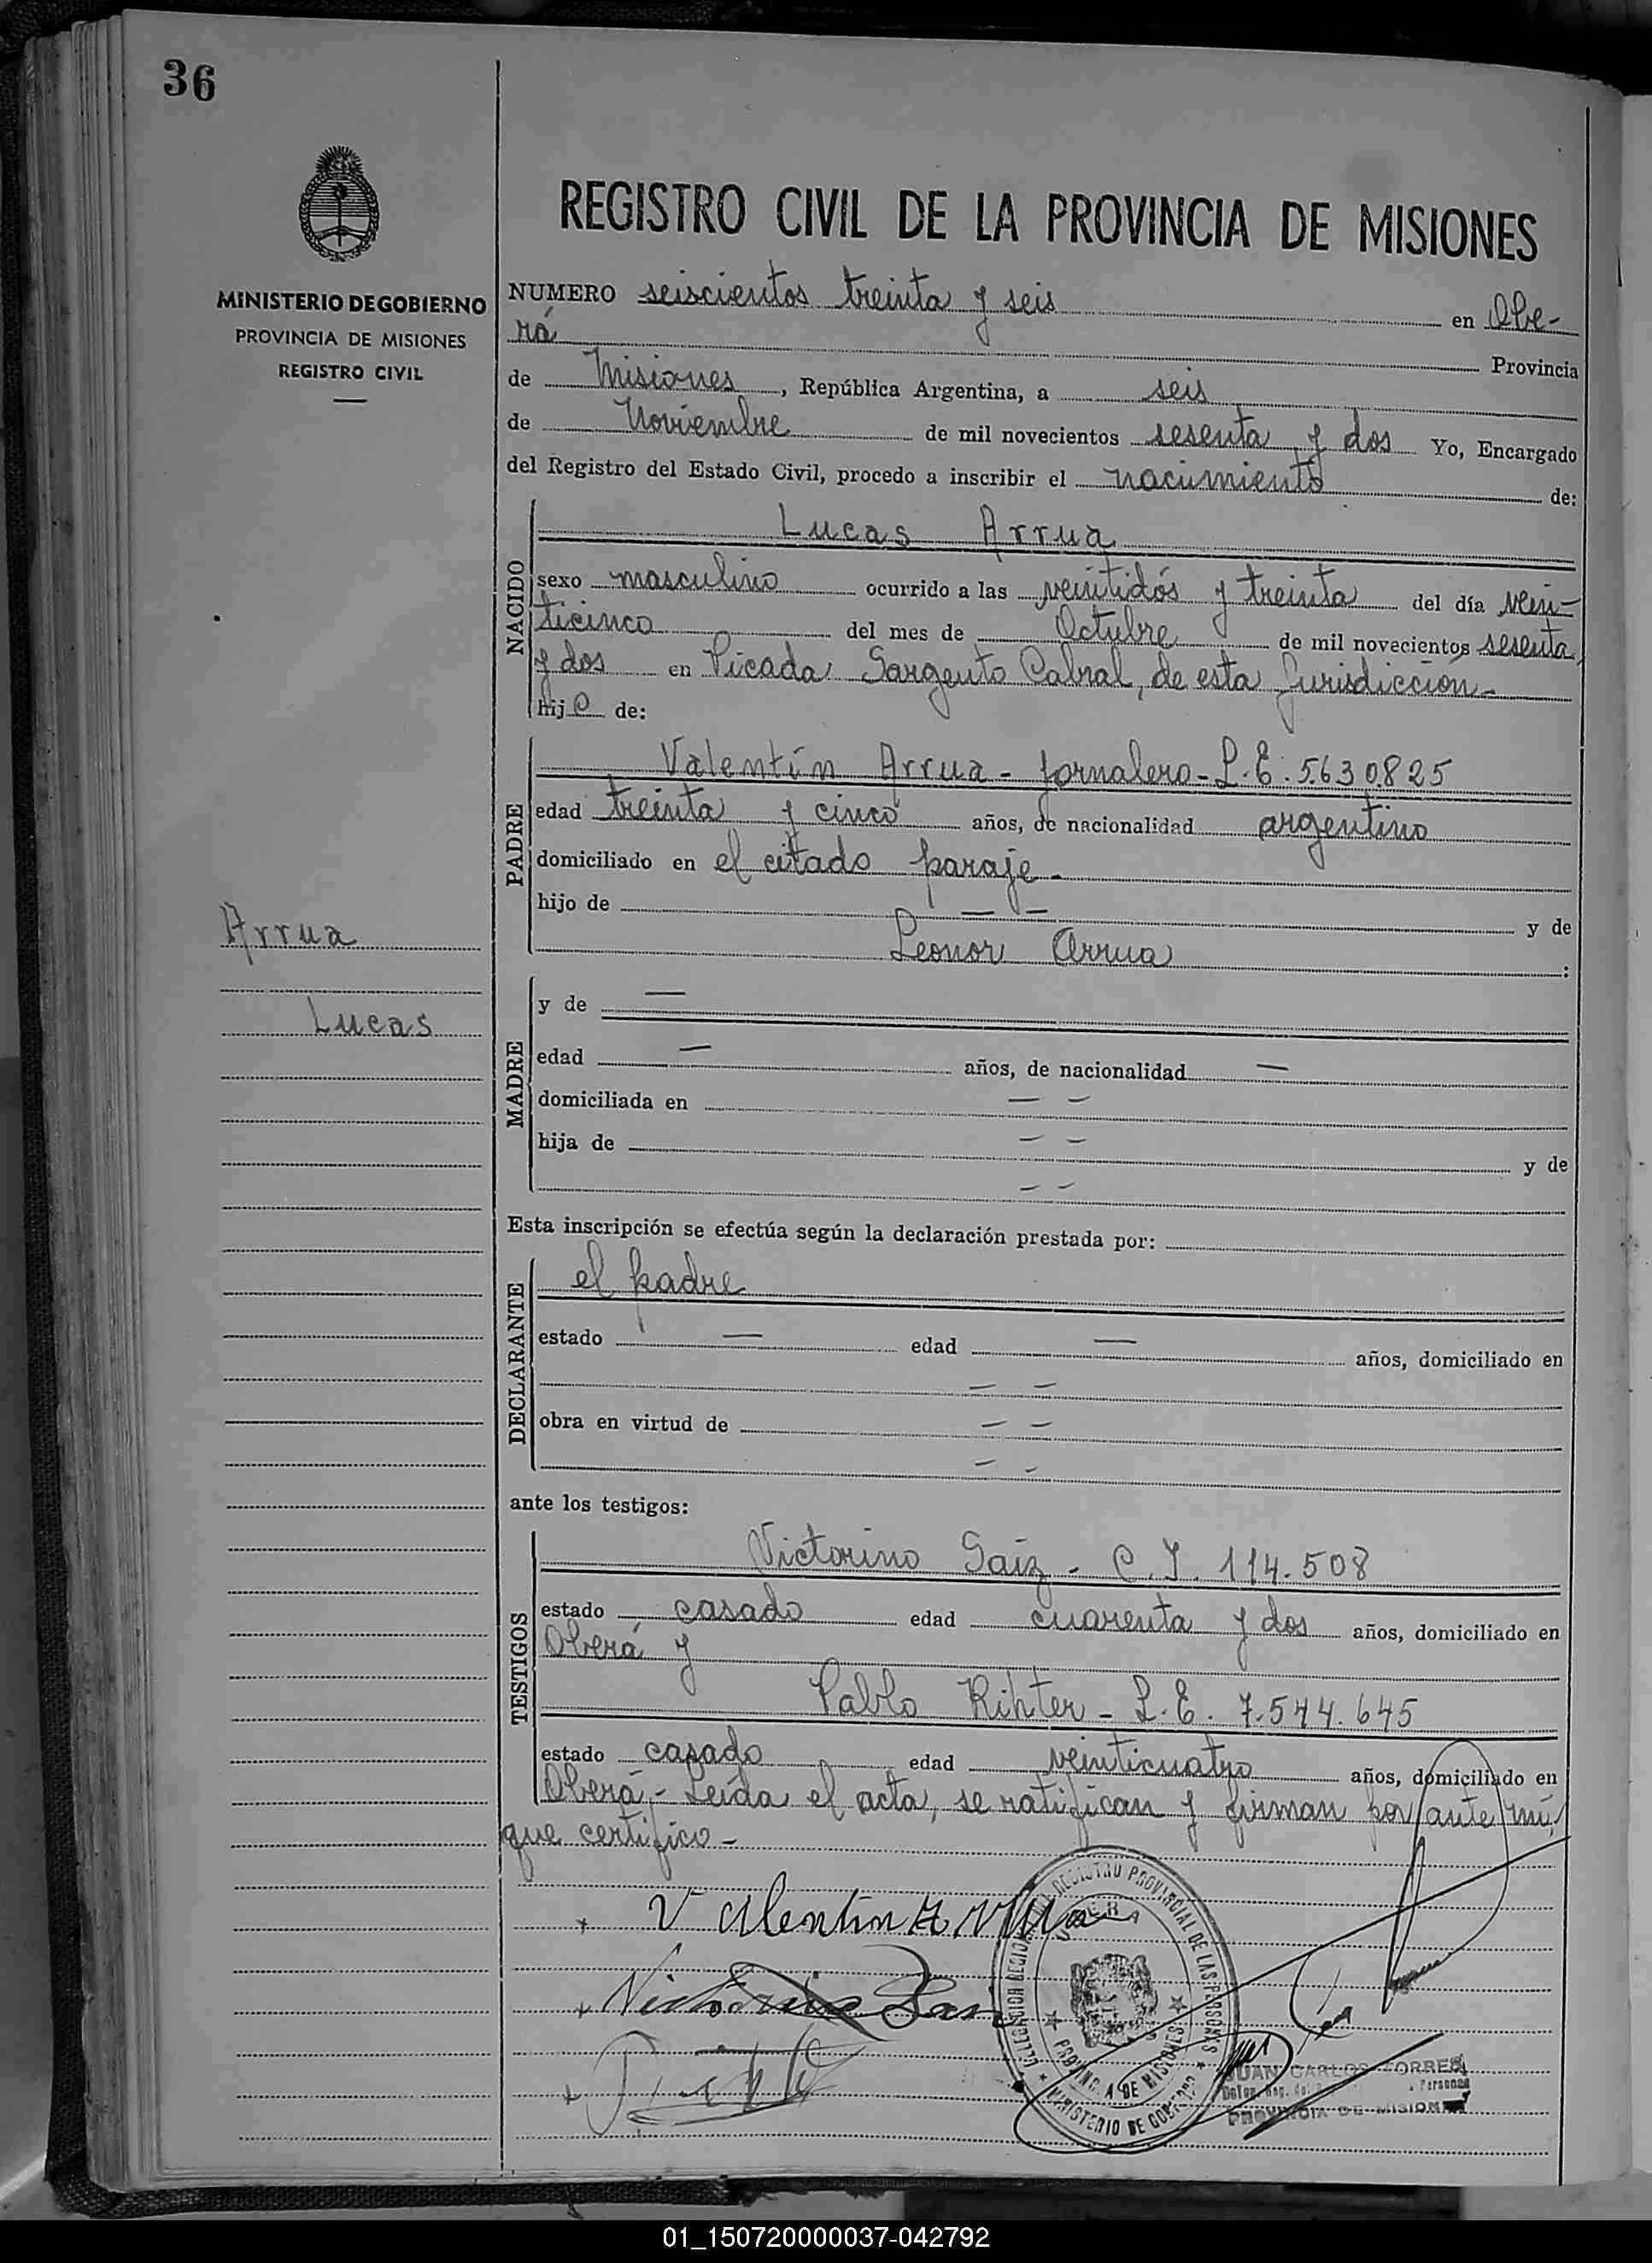 36
MINISTERIO DE GOBIERNO
PROVINCIA DE MISIONES
REGISTRO CIVIL
REGISTRO CIVIL DE LA PROVINCIA DE MISIONES
NUMERO seiscientos treinta y seis en Obe-
rá Provincia
de Misiones, República Argentina, a seis
de Noviembre de mil novecientos sesenta y dos Yo, Encargado
del Registro del Estado Civil, procedo a inscribir el nacimiento de:
NACIDO
Lucas Arrua
sexo masculino ocurrido a las veintidós y treinta del día vein-
ticinco del mes de Octubre de mil novecientos sesenta
y dos en Picada Sargento Cabral, de esta Jurisdicción-
hijo de:
PADRE
Valentín Arrua - Jornalero - L.E. 5.630.825
edad treinta y cinco años, de nacionalidad argentino
domiciliado en el citado paraje-
hijo de — — y de
Leonor Arrua :
Arrua
Lucas
MADRE
y de —
edad — años, de nacionalidad —
domiciliada en — —
hija de — — y de
— —
Esta inscripción se efectúa según la declaración prestada por:
DECLARANTE
el padre
estado — edad — años, domiciliado en
— —
obra en virtud de — —
— —
ante los testigos:
TESTIGOS
Victorino Saiz - C.I. 114.508
estado casado edad cuarenta y dos años, domiciliado en
Oberá y
Pablo Rihter - L.E. 7.544.645
estado casado edad veinticuatro años, domiciliado en
Oberá - Leída el acta, se ratifican y firman por ante mí,
que certifico-
Valentin Arrua
REGISTRO PROVINCIAL DE LAS PERSONAS
OBERA
PROVINCIA DE MISIONES
MINISTERIO DE GOBIERNO
JUAN CARLOS TORRES
PROVINCIA DE MISIONES
01_150720000037-042792